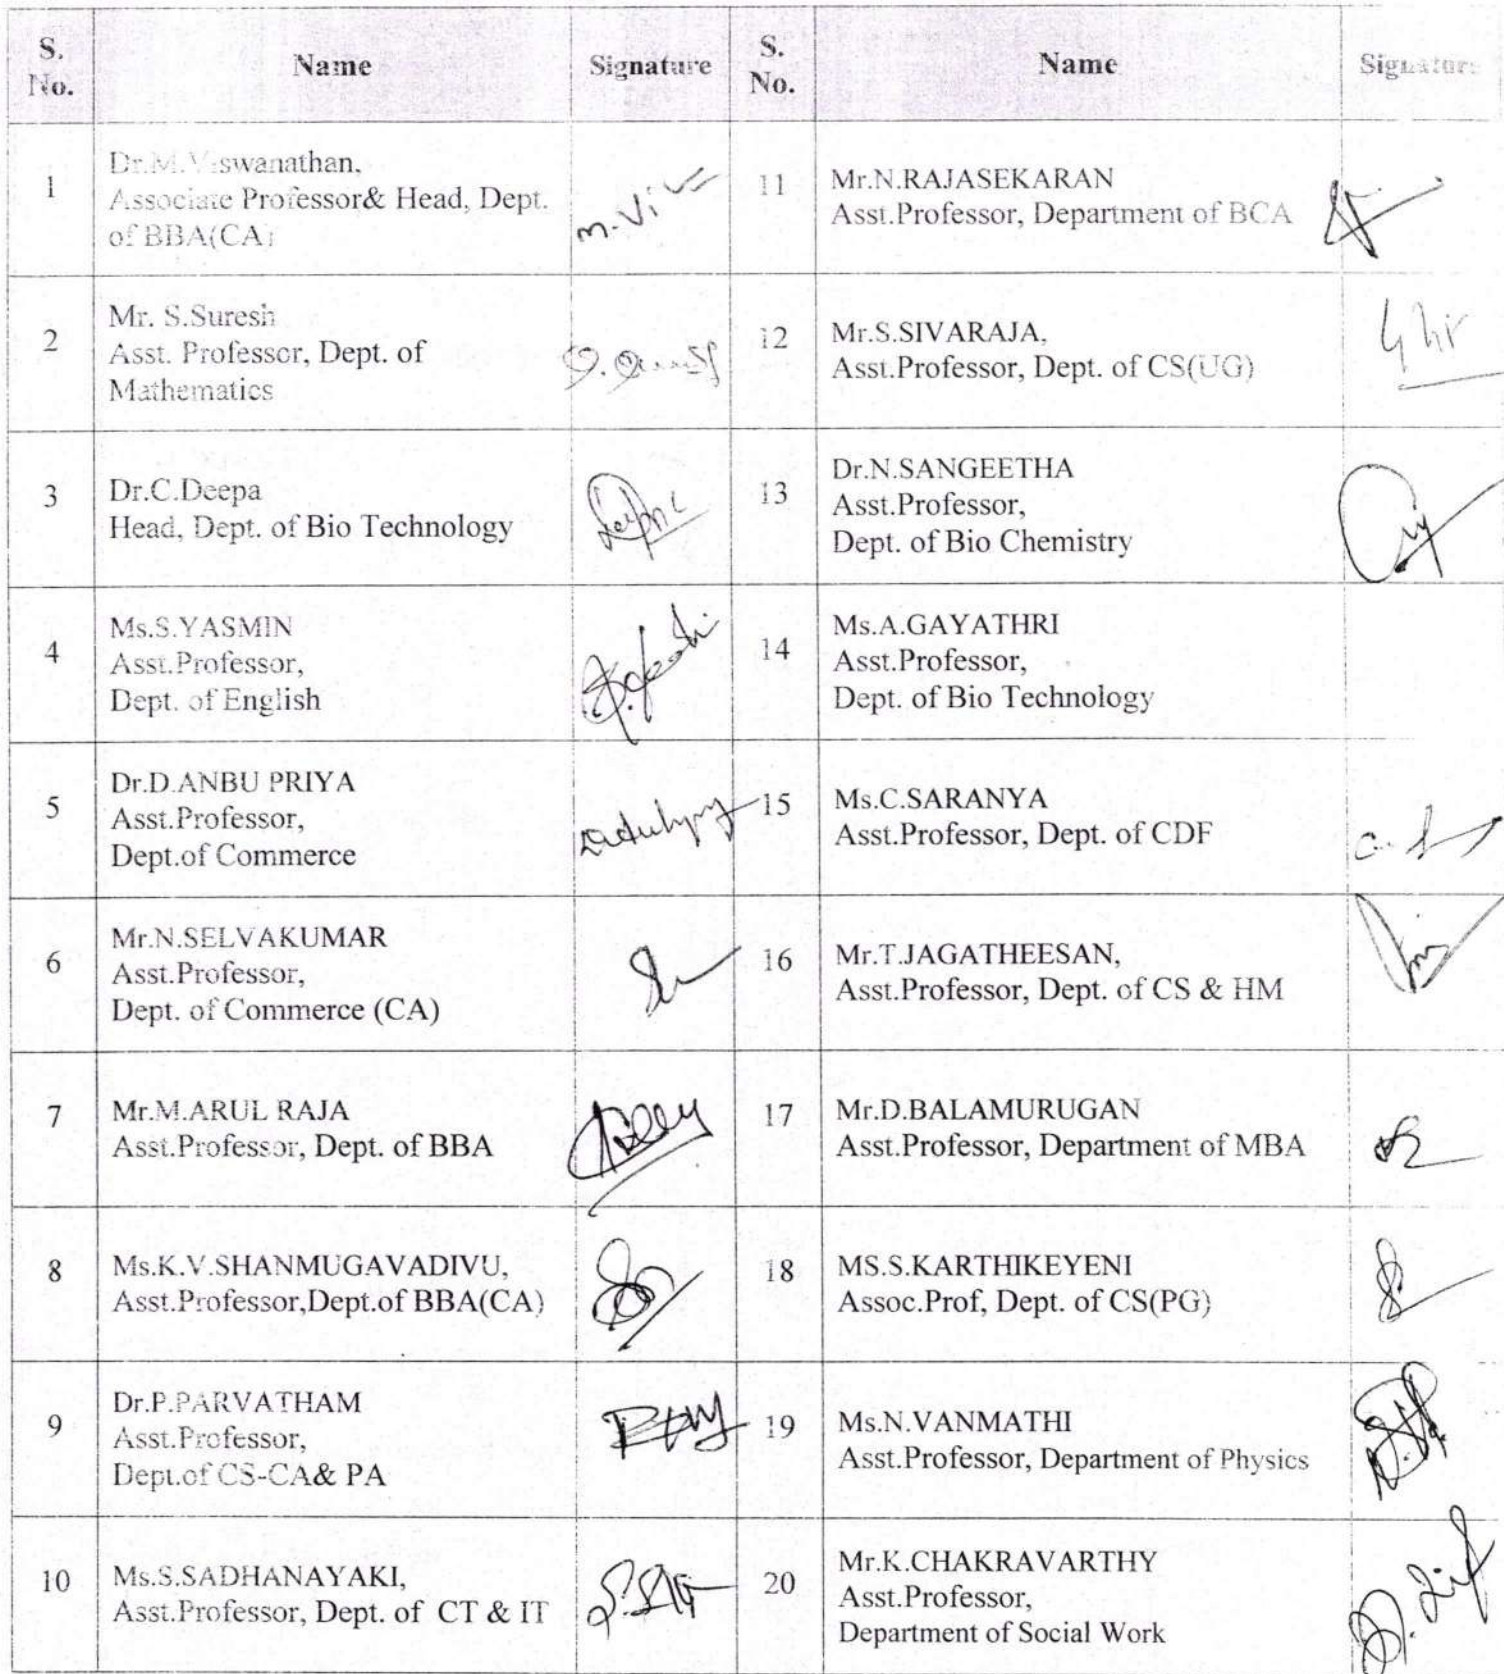 S. No. Name Signature S. No. Name Signature
1 Dr.M.Viswanathan,
Associate Professor& Head, Dept.
of BBA(CA)
m. Vi
11 Mr.N.RAJASEKARAN
Asst.Professor, Department of BCA
2 Mr. S.Suresh
Asst. Professor, Dept. of
Mathematics
12 Mr.S.SIVARAJA,
Asst.Professor, Dept. of CS(UG)
3 Dr.C.Deepa
Head, Dept. of Bio Technology
13 Dr.N.SANGEETHA
Asst.Professor,
Dept. of Bio Chemistry
4 Ms.S.YASMIN
Asst.Professor,
Dept. of English
14 Ms.A.GAYATHRI
Asst.Professor,
Dept. of Bio Technology
5 Dr.D.ANBU PRIYA
Asst.Professor,
Dept.of Commerce
15 Ms.C.SARANYA
Asst.Professor, Dept. of CDF
6 Mr.N.SELVAKUMAR
Asst.Professor,
Dept. of Commerce (CA)
16 Mr.T.JAGATHEESAN,
Asst.Professor, Dept. of CS & HM
7 Mr.M.ARUL RAJA
Asst.Professor, Dept. of BBA
17 Mr.D.BALAMURUGAN
Asst.Professor, Department of MBA
8 Ms.K.V.SHANMUGAVADIVU,
Asst.Professor,Dept.of BBA(CA)
18 MS.S.KARTHIKEYENI
Assoc.Prof, Dept. of CS(PG)
9 Dr.P.PARVATHAM
Asst.Professor,
Dept.of CS-CA& PA
19 Ms.N.VANMATHI
Asst.Professor, Department of Physics
10 Ms.S.SADHANAYAKI,
Asst.Professor, Dept. of CT & IT
20 Mr.K.CHAKRAVARTHY
Asst.Professor,
Department of Social Work